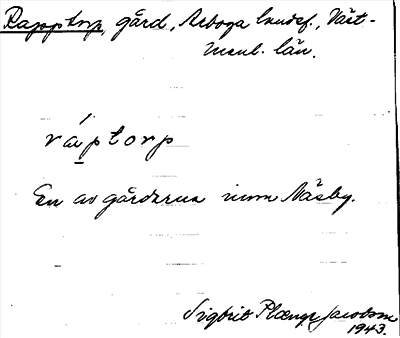 Rapptorp, gård, Arboga landsf., Väst-
manl. län.
ráptorp
En av gårdarna inom Näsby.
Sigbrit Plænge Jacobson
1943.